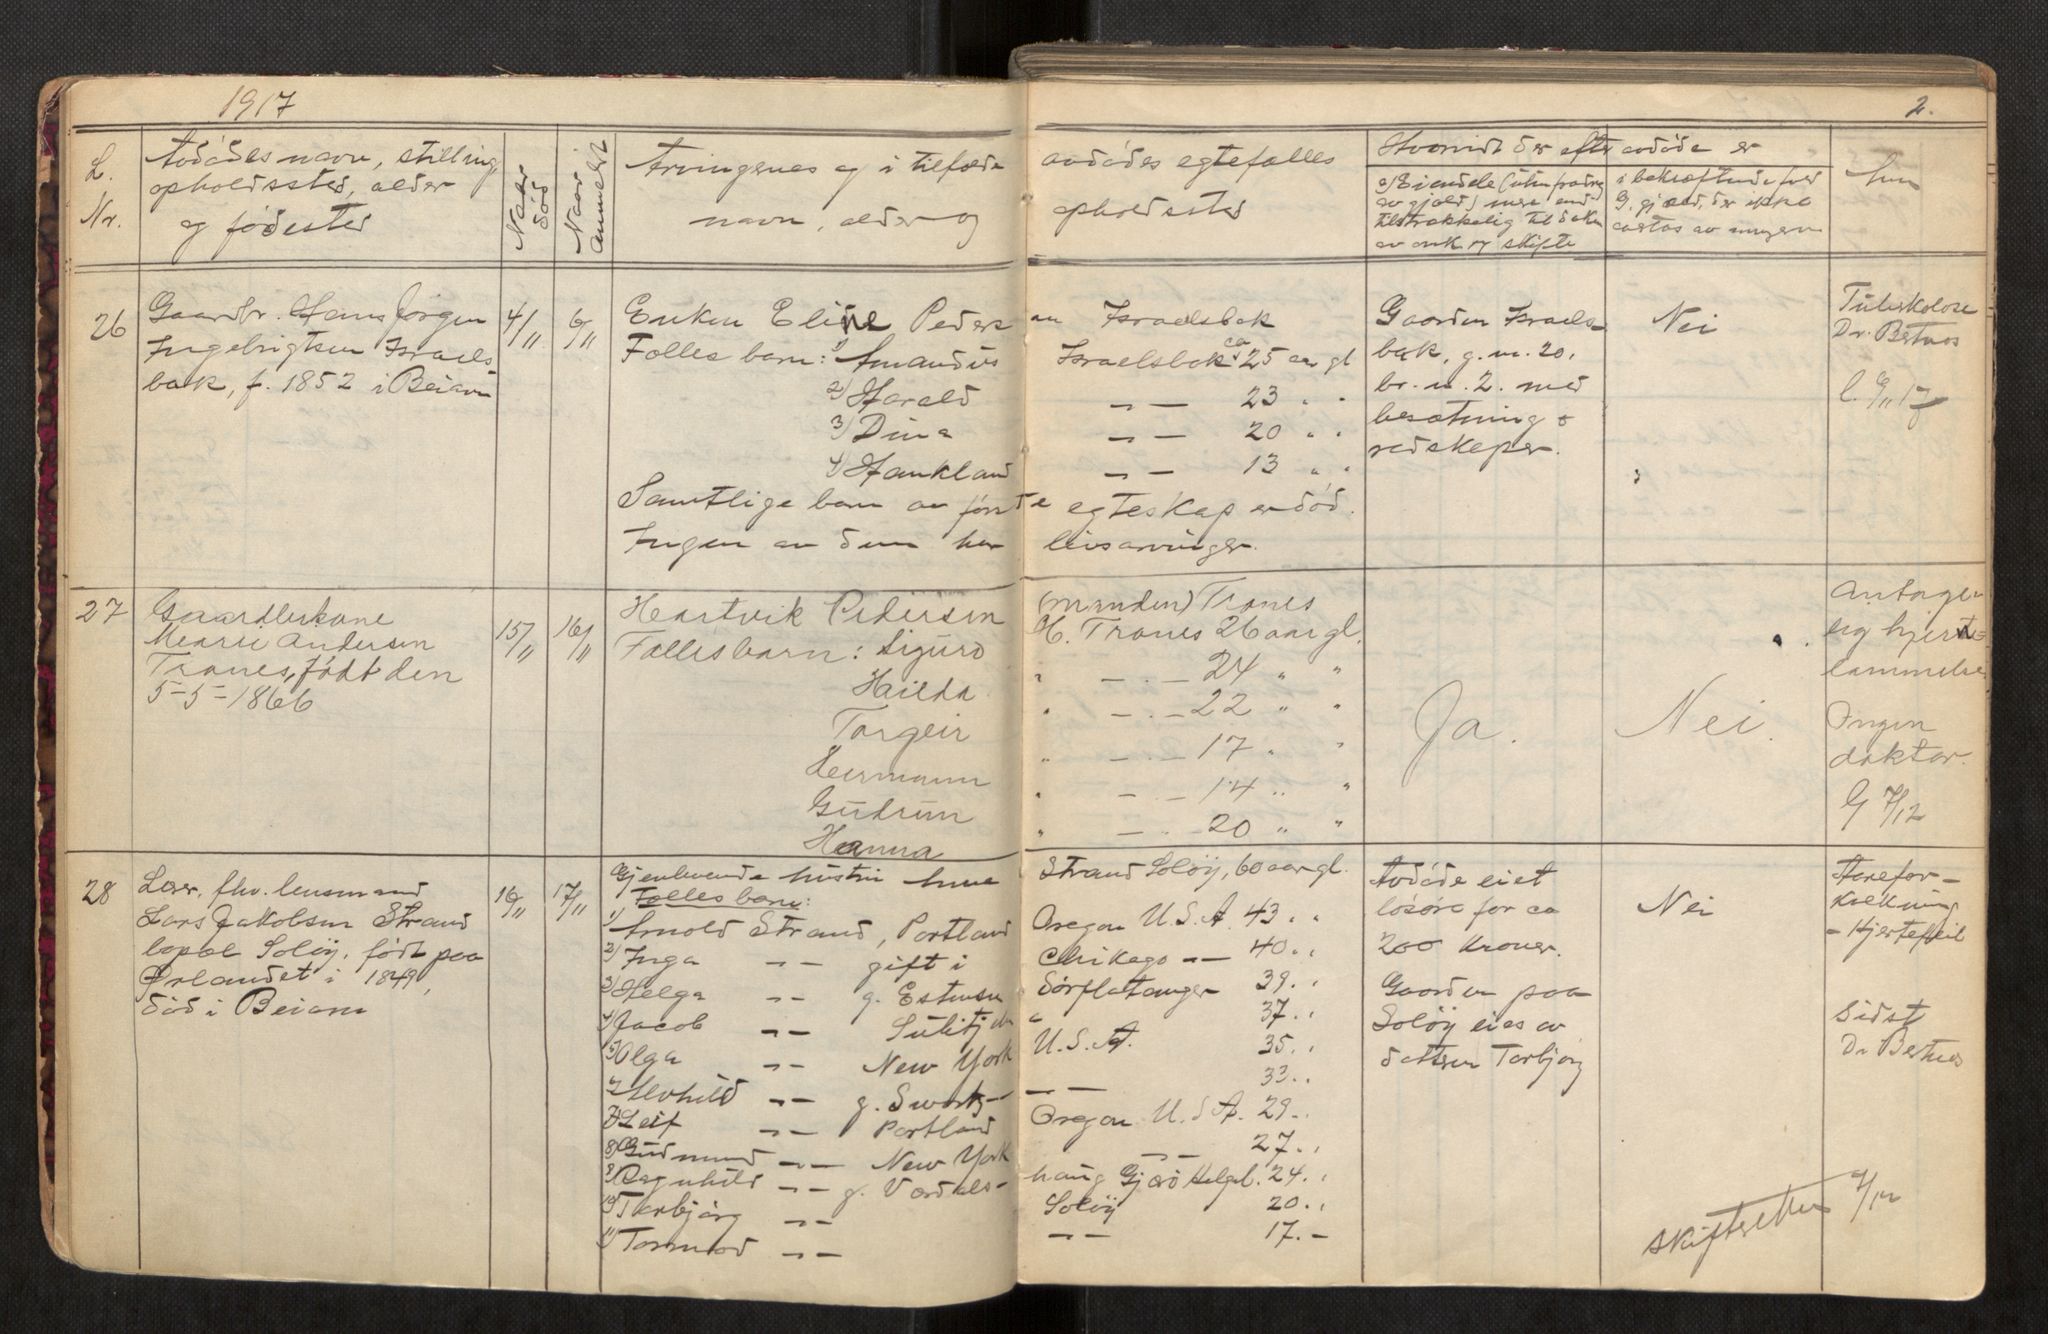 1917
2.
L. Nr.
Avdødes navn, stilling,
opholdssted, alder
og fødested
Naar død
Naar anmeldt
Arvingernes og i tilfælde avdødes egtefælles
navn, alder og opholdssted
Hvorvidt der efter avdøde er
a) Eiendele (uten fradrag
av gjæld) mere end
tilstrækkelig til dækn
av omk. og skifte
i bekræftende fald
G. gjæld, der ikke
av
26
Gaardbr. Hans Jørgen
Ingebrigtsen Israels
bak, f. 1852 i Beiarn
4/11
6/11
Enken Eline Pedersen Israelsbak
Fælles barn: 1) Amandus Israelsbak ca 25 aar gl
2) Harald —„— 23 „ „
3) Dina —„— 20 „ „
4) Haukland —„— 13 „ „
Samtlige barn av første egteskap er død.
Ingen av dem har livsarvinger.
Gaarden Israels-
bak, g.n. 20,
br. n. 2. med
besætning &
redskaper.
Nei
Tuberkolose
Dr. Bernes
27
Gaardbrukerkone
Marie Andersen
Tranes, født den
5-5-1866
15/11
16/11
Hartvik Pedersen (manden) Tranes
Fællesbarn: Sigurd H. Tranes 26 aar gl.
Hailda „ —„— 24 „ „
Torgeir „ —„— 22 „ „
Hermann „ —„— 17 „ „
Gudrun „ —„— 14 „ „
Hanna „ —„— 20 „ „
Ja.
Nei.
Antage-
lig hjerte-
lammelse
Ingen
doktor.
G 7/12
28
fhv. lensmand
Lars Jakobsen Strand
bopæl Soløy, født paa
Ørlandet i 1849,
død i Beiarn
16/11
17/11
Gjenlevende hustru Strand Soløy, 60 aar gl.
Fælles barn:
1) Arnold Strand, Portland Oregon U.S.A. 43 „ „
2) Inga —„— gift i Chikago —„— 40 „ „
3) Helga —„— g. Estensen Sørflatanger 39 „ „
4) Jacob —„— Sulitjelm „ 37 „ „
5) Olga —„— New York U.S.A. 35 „ „
6) Alvhild —„— g. Swartz —„— 33 „ „
7) Leif —„— Portland Oregon U.S.A. 29 „
8) Gudmund —„— New York —„— 27 „ „
9) Ragnhild —„— g. Vædals- haug Gjerø Helgel. 24 „ „
10) Torbjørg —„— Soløy 20 „ „
11) Tormod —„— —„— 17 „ –
Avdøde eiet
løsøre for ca
200 kroner.
Gaarden paa
Soløy eies av
datteren Torbjørg
Nei
Aarefor-
kalkning
- Hjertefeil
Sidst
Dr Bernes
skifteretten 7/12